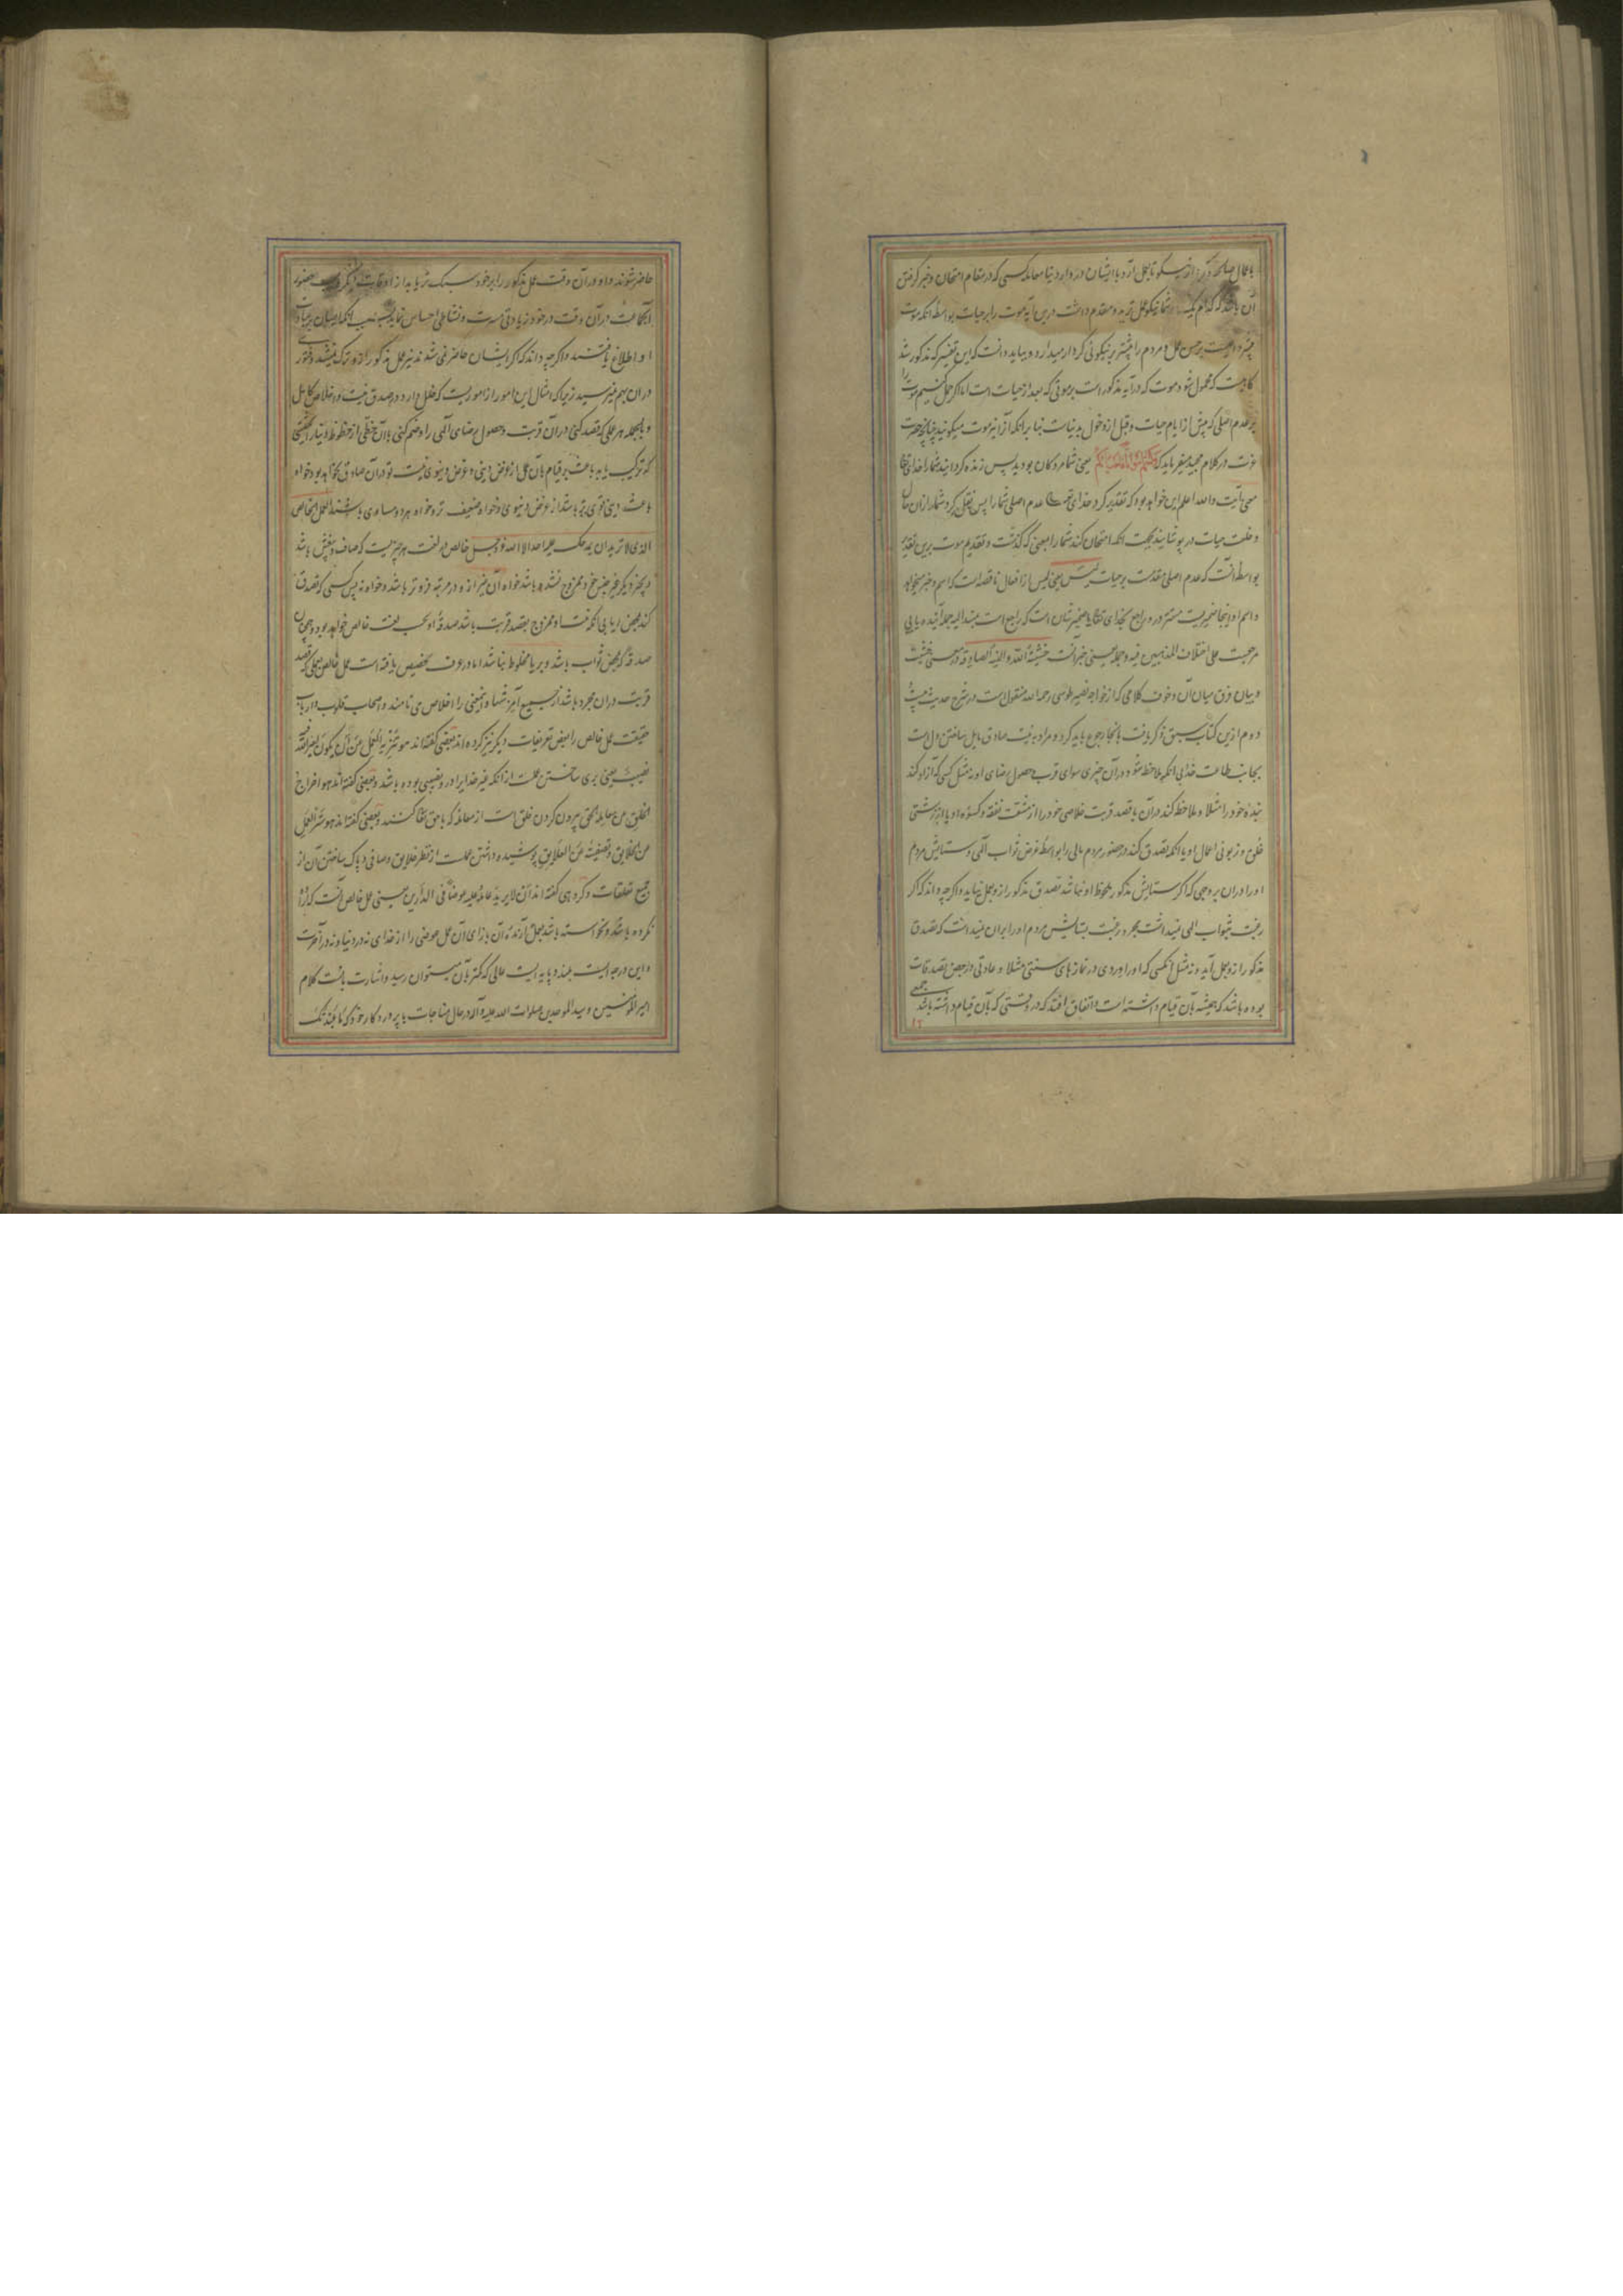 آن باشد که کدام یک از شما نیکو عمل ترید و مقدم داشت درین آیه موت را بر حیات بواسطه آنکه موت
حسن عمل و مردم را بیشتر بر نیکوئی کردار میدارد و بباید دانست که این تفسیر که مذکور شد
که محمول شود موت که در آیه مذکور است بر موتی که بعد از حیات است اما اگر حمل کنیم موت را
بر عدم اصلی که پیش از ایام حیات و قبل از دخول بدنیاست بنا بر آنکه آنرا نیز موت میگویند چنانچه حضرت
عزت در کلام مجید میفرماید که یعنی شما مردگان بودید پس زنده گردانید شما را خدای تعالی
معنی آیت والله اعلم این خواهد بود که تقدیر کرد خدای عدم اصلی شما را پس نقل کرد شما را از آن
و خلعت حیات در پوشانید بجهت آنکه امتحان کند شما را بمعنی که گذشت و تقدیم موت برین تقدیر
بواسطه آنست که عدم اصلی مقدمست بر حیات لیس یعنی لیس از افعال ناقصه است که اسم و خبر میخواهد
و اسم او اینجا ضمیریست مستتر در و راجع بخدای تعالی یا ضمیر شان است که راجع است
مرجعیت علی اختلاف المذهبین فیه و جمله یعنی خبر آنست خشیة الله والنیة الصادقة در معنی خشیت
و بیان فرق میان آن و خوف کلامی که از خواجه نصیر طوسی رحمه الله منقول است در شرح حدیث
دوم ازین کتاب سبق ذکر یافت بآنجا رجوع باید کرد و مراد به نیت صادق مایل ساختن دل است
بجانب طاعت خدا بی آنکه ملاحظه شود در آن چیزی سوای قرب و حصول رضای او نه مثل کسی که آزاد کند
بنده خود را مثلا و ملاحظه کند در آن با قصد قربت خلاصی خود را از مشقت نفقه و کسوه او یا از زشتی
خلق و زبونی اعمال او یا آنکه تصدق کند در حضور مردم مالی را بواسطه غرض ثواب الهی و ستایش مردم
او را در آن بر وجهی که اگر ستایش مذکور ملحوظ او نباشد تصدق مذکور ازو بعمل نیاید و اگر چه داند که اگر
رغبت بثواب الهی نمیداشت بمجرد رغبت بستایش مردم او را بر آن نمیداشت که تصدق
مذکور ازو بعمل آید و نه مثل آنکسی که او را وردی در نمازهای سنتی مثلا و عادتی در بعض تصدقات
بوده باشد که همیشه بآن قیام داشته است و اتفاق افتد که در وقتی که بآن قیام داشته باشد جمعی
حاضر شوند و او در آن وقت عمل مذکور را بر خود سبک
آنجماعت در آن وقت در خود زیادتی مسرت و نشاطی احساس نماید بسبب آنکه ایشان بر عبادت
او اطلاع یافتند و اگر چه داند که اگر ایشان حاضر نمی شدند نیز عمل مذکور ازو ترک نمیشد و فتوری
در آن بهم نمیرسید زیرا که امثال این امور از اموریست که خلل دارد در صدق نیت و اخلاص کامل
و بالجمله هر عملی که قصد کنی در آن قربت و حصول رضای الهی را و ضم کنی با آن حظی از حظوظ دنیا را بحیثیتی
که ترکیب یابد باعث بر قیام بآن عمل از غرض دینی و غرض دنیوی نیت تو در آن صادق نخواهد بود خواه
باعث دینی قوی تر باشد از غرض دنیوی و خواه ضعیف تر و خواه هر دو مساوی باشند العمل الخالص
الذی لا ترید ان یحمدک علیه احد الا الله عز و جل خالص در لغت هر چیزیست که صاف و بیغش باشد
و بچیز دیگر غیر جنس خود ممزوج نشده باشد خواه آن چیز ازو در مرتبه فروتر باشد و خواه نه پس کسی که تصدق
کند بمحض ریا بی آنکه نیت او ممزوج بقصد قربت باشد صدقه او بحسب لغت خالص خواهد بود و همچنان
صدقه که بمحض ثواب باشد و بریا مخلوط نباشد اما در عرف تخصیص یافته است عمل خالص بعملی که قصد
قربت در آن مجرد باشد از جمیع آمیزشها و اینمعنی را اخلاص می نامند و اصحاب قلوب و ارباب
حقیقت عمل خالص را ببعض تعریفات دیگر نیز کرده اند بعضی گفته اند هو تنزیه العمل من أن یکون لغیر الله
نصیب یعنی بری ساختن عملست از آنکه غیر خدا را در و نصیبی بوده باشد و بعضی گفته اند هو اخراج
الخلق عن معاملة الحق بیرون کردن خلق است از معامله که با حق تعالی کنند و بعضی گفته اند هو ستر العمل
من الخلایق و تصفیته من العلایق پوشیده داشتن عملست از نظر خلایق و صافی و پاک ساختن آن از
جمیع تعلقات و گروهی گفته اند أن لا یرید عامله علیه عوضا فی الدارین یعنی عمل خالص آنست که اراده
نکرده باشد و نخواسته باشد بعمل آرنده آن بازای آن عمل عوضی را از خدای نه در دنیا و نه در آخرت
و این درجه ایست بلند و پایه ایست عالی که کمتر بآن میتوان رسید و اشارت باینست کلام
امیر المؤمنین و سید الموحدین صلوات الله علیه و آله در حال مناجات با پروردگار خود که ما عبدتک